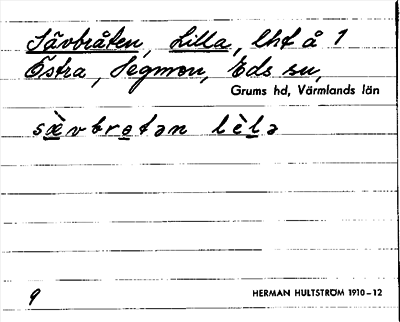 Sävbråten, Lilla, lht å 1
Östra, Segmon, Eds sn,
Grums hd, Värmlands län
sæ̀vbrotən lèlə
9
HERMAN HULTSTRÖM 1910-12